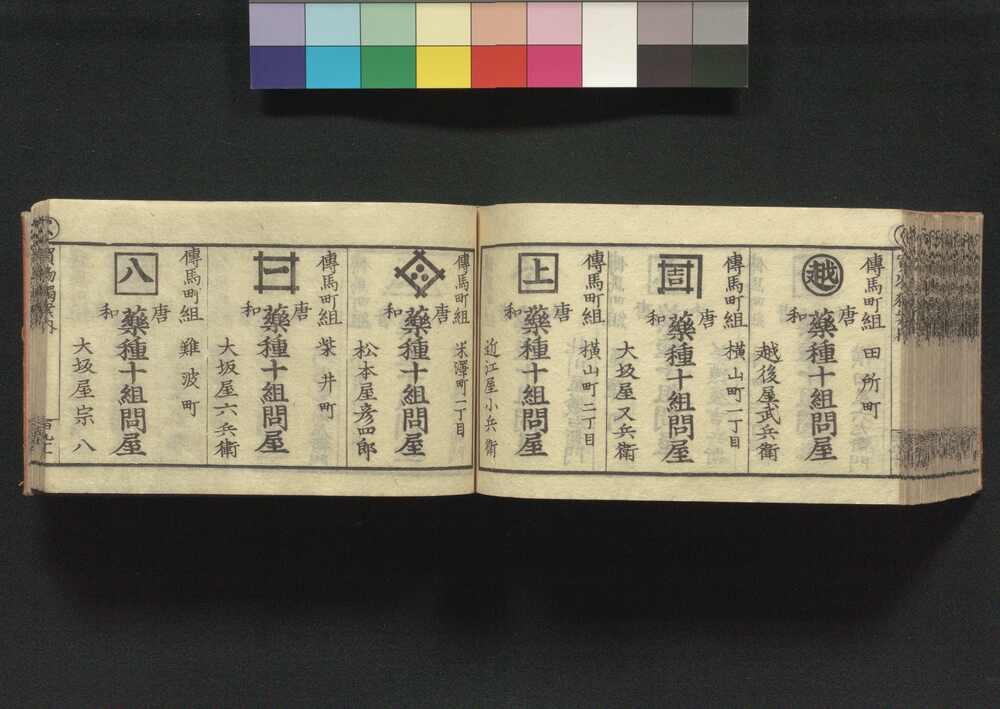 傳馬町組 田所町
越
唐和 藥種十組問屋
越後屋武兵衛
傳馬町組 橫山町一丁目
吉
唐和 藥種十組問屋
大坂屋又兵衛
傳馬町組 橫山町二丁目
上
唐和 藥種十組問屋
近江屋小兵衛
傳馬町組 米澤町一丁目
唐和 藥種十組問屋
松本屋彦四郎
傳馬町組 柴井町
一
唐和 藥種十組問屋
大坂屋六兵衛
傳馬町組 難波町
八
唐和 藥種十組問屋
大坂屋宗八